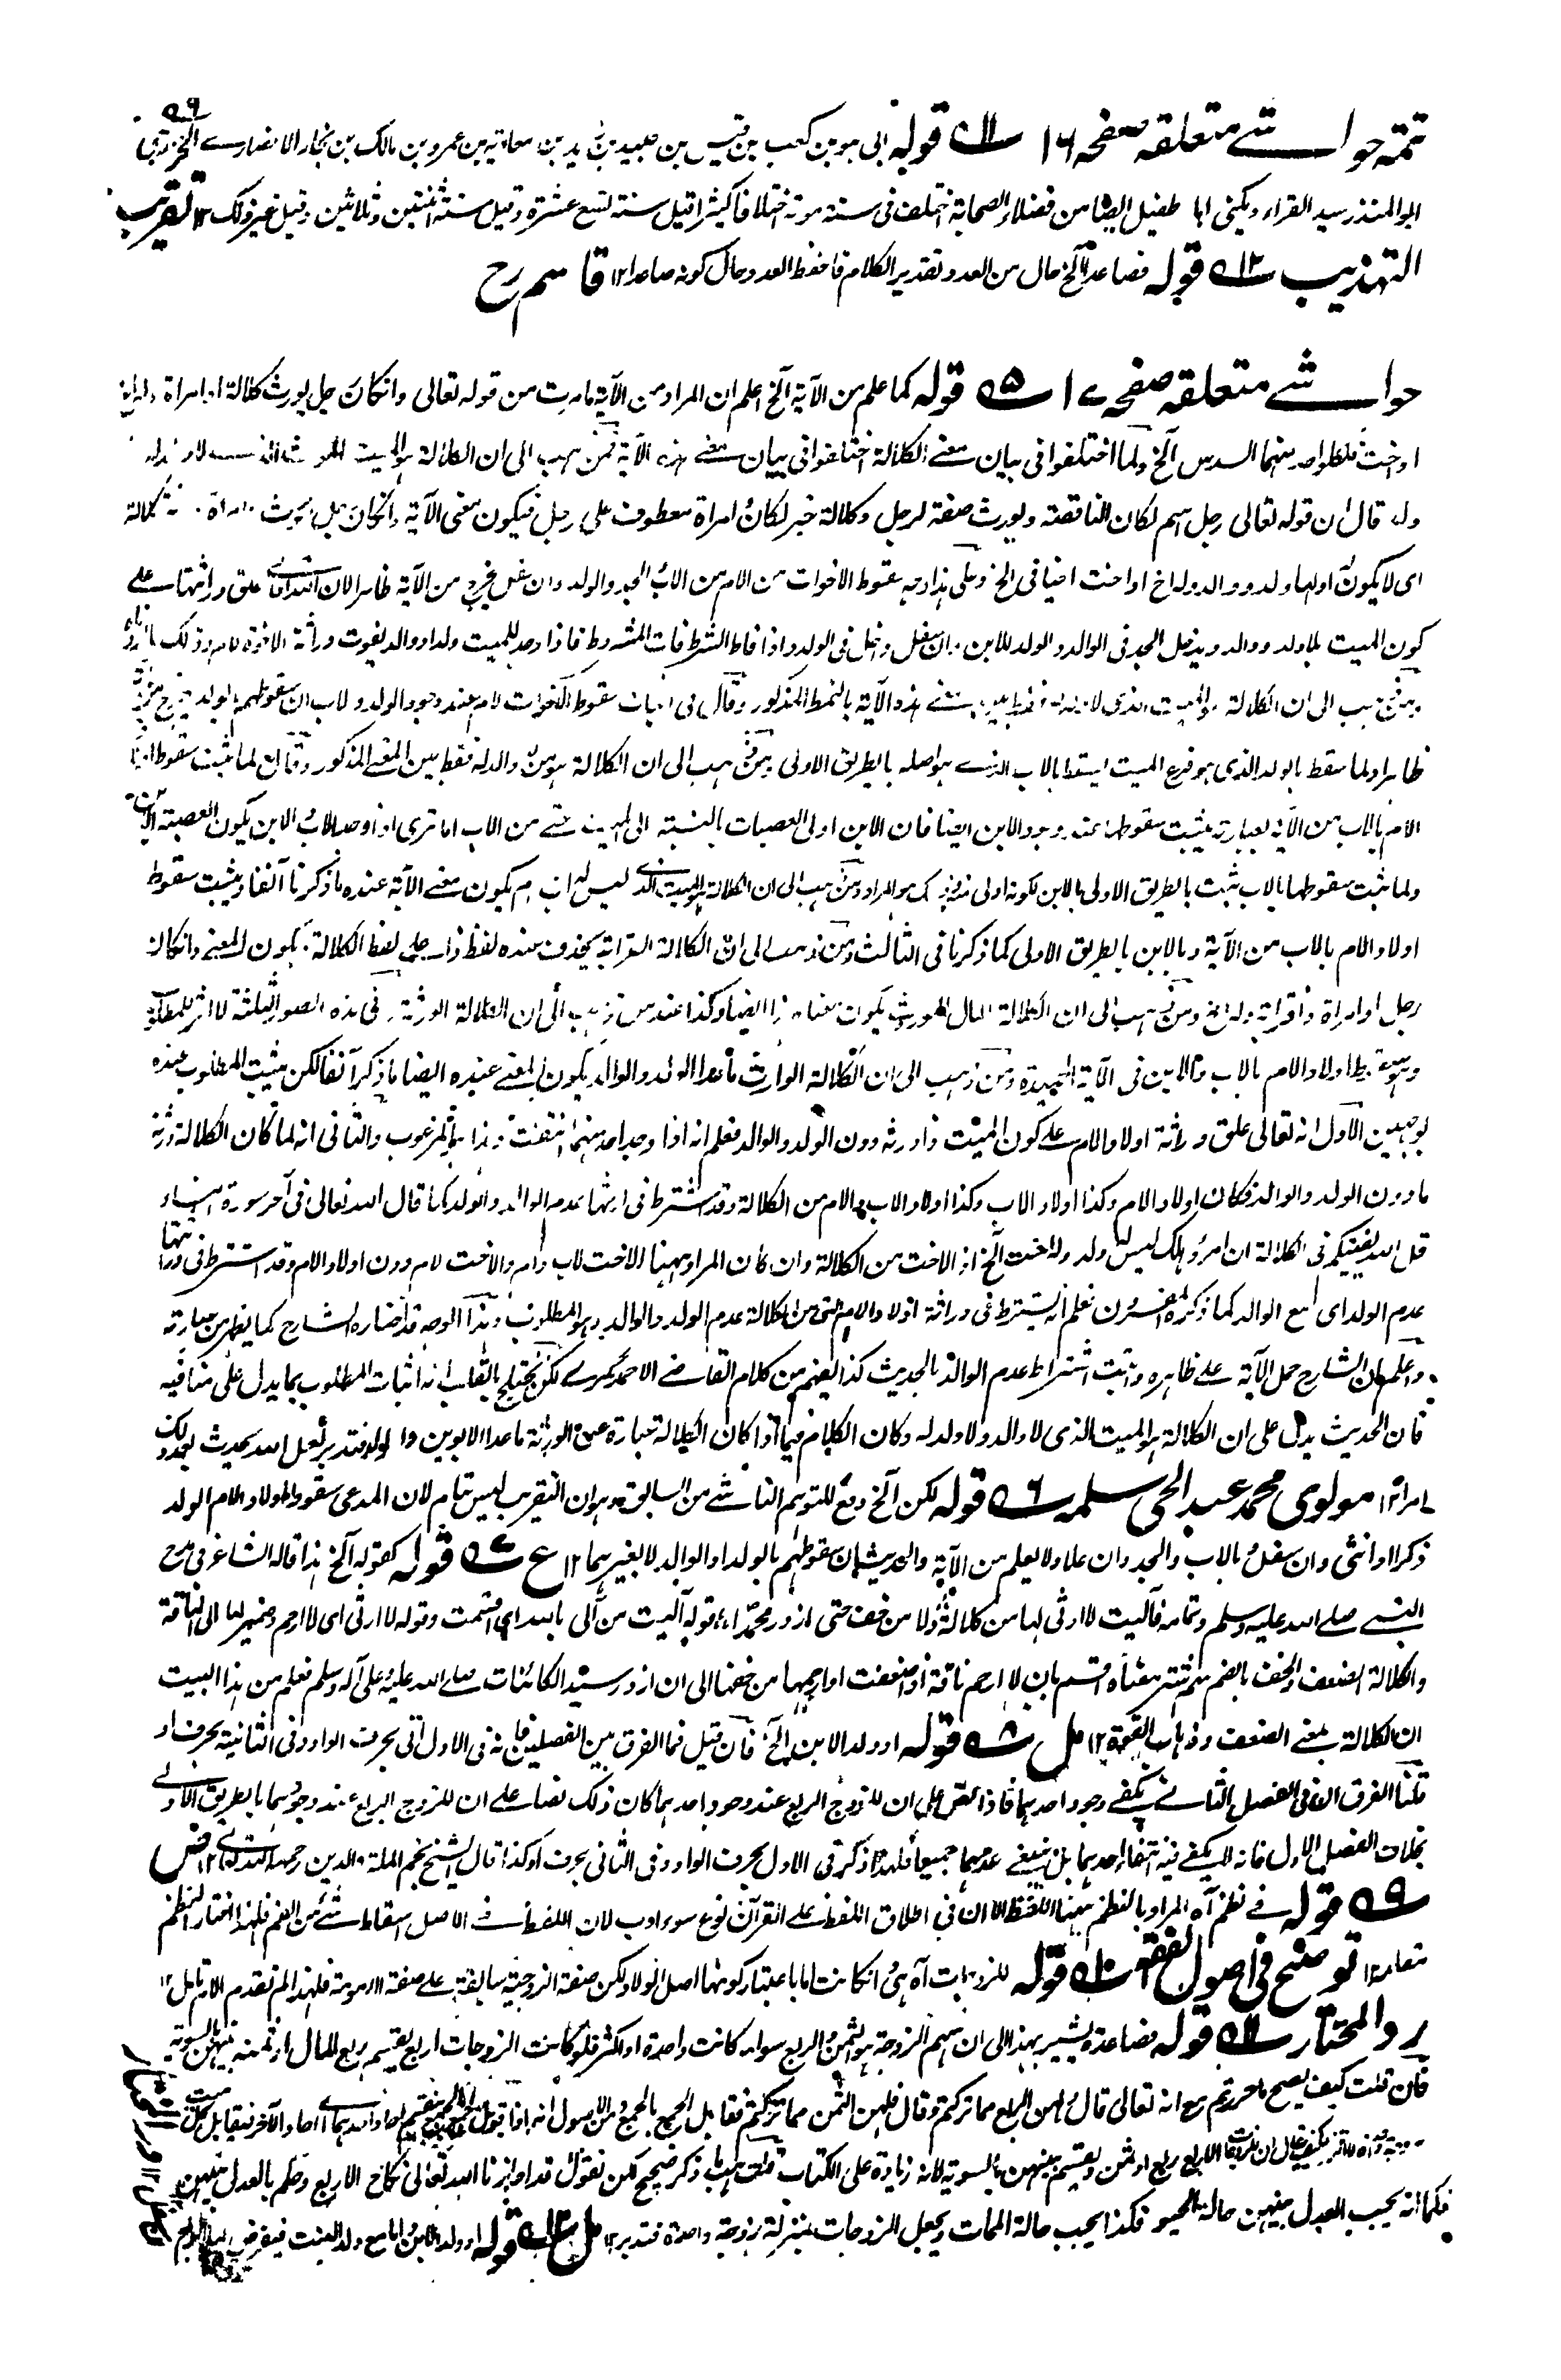 ٥٩
تتمہ حواشے متعلقہ صفحہ ١٦ ١١ قوله ابی هو بن کعب بن قیس بن عبید بن زید بن معاویة بن عمرو بن مالک بن نجار الانصارے الخزرجی
ابو المنذر سید القراء ویکنی ابا طفیل ایضا من فضلاء الصحابة اختلف فی سنة موته اختلافا کثیرا قیل سنة تسع عشرة وقیل سنة اثنتین وثلاثین وقیل غیر ذلک ١٢ تقریب
التهذیب ١٢ قوله فصاعدا الخ حال من العدد وتقدیر الکلام فاحفظ العدد حال کونه صاعدا ١٢ قاسم رح
حواشے متعلقہ صفحہ ١٧ ٥ قوله کما علم من الآیة الخ اعلم ان المراد من الآیة ما مرت من قوله تعالی وانکان رجل یورث کلالة او امراة وله اخ
او اخت فلکل واحد منهما السدس الخ ولما اختلفوا فی بیان معنے الکلالة اختلفوا فی بیان معنے هذه الآیة فمن ذهب الی ان الکلالة هو المیت الذی لا ولد له
ولا والد قال ان قوله تعالی رجل اسم لکان الناقصة ویورث صفة لرجل وکلالة خبر لکان وامراة معطوف علی رجل فیکون معنی الآیة وانکان رجل یورث او امراة کلالة
ای لا یکون لهما ولد ووالد وله اخ او اخت اخیافی الخ وعلی هذا وجه سقوط الاخوات من الام من الاب والجد والولد وان سفل یخرج من الآیة ظاهرا لان الله تعالی علق وراثتها علے
کون المیت بلا ولد ووالد ویدخل الجد فی الوالد والولد للابن وان سفل داخل فی الولد واذا فات الشرط فات المشروط فاذا وجد للمیت ولد او والد یفوت وراثة الاخوة لام وذلک
ومن ذهب الی ان الکلالة هو المیت الذی لا ولد له فقط بین معنے هذه الآیة بالنمط المذکور وقال فی اثبات سقوط الاخوات لام عند وجود الولد والاب ان سقوطهم بالولد
ظاهرا ولما سقط بالولد الذی هو فرع المیت یسقط بالاب الذے هو اصله بالطریق الاولی ومن ذهب الی ان الکلالة هو من لا والد له فقط بین المعنے المذکور وقال لما ثبت سقوط اولاد
الام بالاب من الآیة بعبارته یثبت سقوطها عند وجود الابن ایضا فان الابن اولی العصبات بالنسبة الی المیت حتے من الاب اما تری اذا وجد الاب والابن یکون العصبة الابن
ولما ثبت سقوطها بالاب ثبت بالطریق الاولی بالابن لکونه اولی منه وذلک هو المراد ومن ذهب الی ان الکلالة المیت الذے لیس له اب وام یکون معنے الآیة عنده ما ذکرنا آنفا ویثبت سقوط
اولاد الام بالاب من الآیة وبالابن بالطریق الاولی کما ذکرنا فی الثالث ومن ذهب الی ان الکلالة القرابة یحذف عنده لفظ ذا علے لفظ الکلالة فیکون المعنے وانکان
رجل او امراة ذا قرابة وله اخ ومن ذهب الی ان الکلالة المال الموروث یکون معناه هذا ایضا وکذا عند من ذهب الی ان الکلالة الورثة وفی هذه الصور الثلثة لا اثر للمطلوب
وهو سقوط اولاد الام بالاب والابن فی الآیة المجیدة ومن ذهب الی ان الکلالة الوارث ما عدا الولد والوالد یکون المعنے عنده ایضا ما ذکر آنفا لکن یثبت المطلوب عنده
بوجهین الاول انه تعالی علق وراثة اولاد الام علے کون المیت ذا ورثة دون الولد والوالد فعلم انه اذا وجد احد منهما انتفت وهذا هو المرغوب والثانی انه لما کان الکلالة ورثة
ما دون الولد والوالد فکان اولاد الام وکذا اولاد الاب وکذا اولاد الاب والام من الکلالة وقد اشترط فی ارثها عدم الوالد والولد کما قال الله تعالی فی آخر سورة النساء
قل الله یفتیکم فی الکلالة ان امرؤ هلک لیس له ولد وله اخت الخ اذ الاخت من الکلالة وان کان المراد ههنا الاخت لاب وام والاخت لام دون اولاد الام وقد اشترط فی وراثتها
عدم الولد ای مع الوالد کما ذکره المفسرون فعلم انه یشترط فی وراثة اولاد الام التی من الکلالة عدم الولد والوالد وهو المطلوب وهذا الوجه قد اختاره الشارح کما یظهر من عبارته
واعلم ان الشارح حمل الآیة علے ظاهره واثبت اشتراط عدم الوالد بالحدیث کذا یفهم من کلام القاضے الاحمدنگرے لکن یختلج بالقلب انه اثبات المطلوب بما یدل علی منافیه
فان الحدیث یدل علی ان الکلالة هو المیت الذی لا والد ولا ولد له وکان الکلام فیما اذا کان الکلالة عبارة عن الورثة ما عدا الابوین والولد فتدبر لعل الله یحدث بعد ذلک
امرا ١٢ مولوی محمد عبد الحی سلمہ ٦ قوله لکن الخ دفع للتوهم الناشے من السابق وهو ان التقریب لیس بتام لان المدعی سقوط اولاد الام الولد
ذکرا او انثی وان سفل بالاب والجد وان علا ولا یعلم من الآیة والحدیث الا سقوطهم بالولد او الوالد لا بغیرهما ١٢ ع ٧ قوله کقوله الخ هذا قاله الشاعر فی مدح
النبے صلے الله علیه وسلم وتمامه فآلیت لا ارثی لها من کلالة ولا من حفی حتی ازور محمدا، قوله آلیت من آلی بالله ای اقسمت وقوله لا ارثی ای لا ارحم وضمیر لها الی الناقة
والکلالة الضعف والحفی بالضم معناه قسم بان لا ارحم ناقة اذا ضعفت او ارحمها من حفها الی ان ازور سید الکائنات صلے الله علیه وعلی آله وسلم فعلم من هذا البیت
ان الکلالة بمعنے الضعف وذهاب القوة ١٢ مل ٨ قوله او ولد الابن الخ فان قیل فما الفرق بین الفصلین فانه فی الاول اتی بحرف الواو وفی الثانیة بحرف او
قلنا الفرق ان فی الفصل الثانے یکفے وجود احدهما فاذا نص علی ان للزوج الربع عند وجود احدهما کان ذلک نصا علے ان للزوج الربع عند وجودهما بالطریق الاولے
بخلاف الفصل الاول فانه لا یکفے فیه انتفاء احدهما بل ینبغے عدمهما جمیعا فلهذا ذکر فی الاول بحرف الواو وفی الثانی بحرف او کذا قال الشیخ نجم الملة والدین رحمه الله تعالے ١٢ ض
٩ قوله فے نظم آه المراد بالنظم ههنا اللفظ الا ان فی اطلاق اللفظ علے القرآن نوع سوء ادب لان اللفظ فے الاصل اسقاط شے من الفم فلهذا اختار النظم
مقامه ١٢ توضیح فی اصول الفقه ١٠ قوله للزوجات آه هی انکانت اما باعتبار کونها اصل الولاد لکن صفة الزوجیة سابقة علے صفة الامومة فلهذا لم تقدم الام تامل ١٢
رد المحتار ١١ قوله فصاعدة یشیر بهذا الی ان سهم الزوجة هو الثمن او الربع سواء کانت واحدة او اکثر فلو کانت الزوجات اربع یقسم ربع المال او ثمنه بینهن بالسویة
فان قلت کیف یصح ما حررتم مع انه تعالی قال ولهن الربع مما ترکتم وقال فلهن الثمن مما ترکتم فقابل الجمع بالجمع ومن الاصول انه اذا قوبل الجمع بالجمع
الاربع ربع او ثمن ویقسم بینهن بالسویة لانه زیادة علی الکتاب قلت ما ذکر صحیح لکن نقول قد امرنا الله تعالی فی نکاح الاربع وحکم بالعدل بینهن
فکما انه یجب العدل بینهن حالة الحیوة فکذا یجب حالة الممات ویجعل الزوجات بمنزلة زوجة واحدة فتدبر ١٢ مل ١٢ قوله او ولد الابن